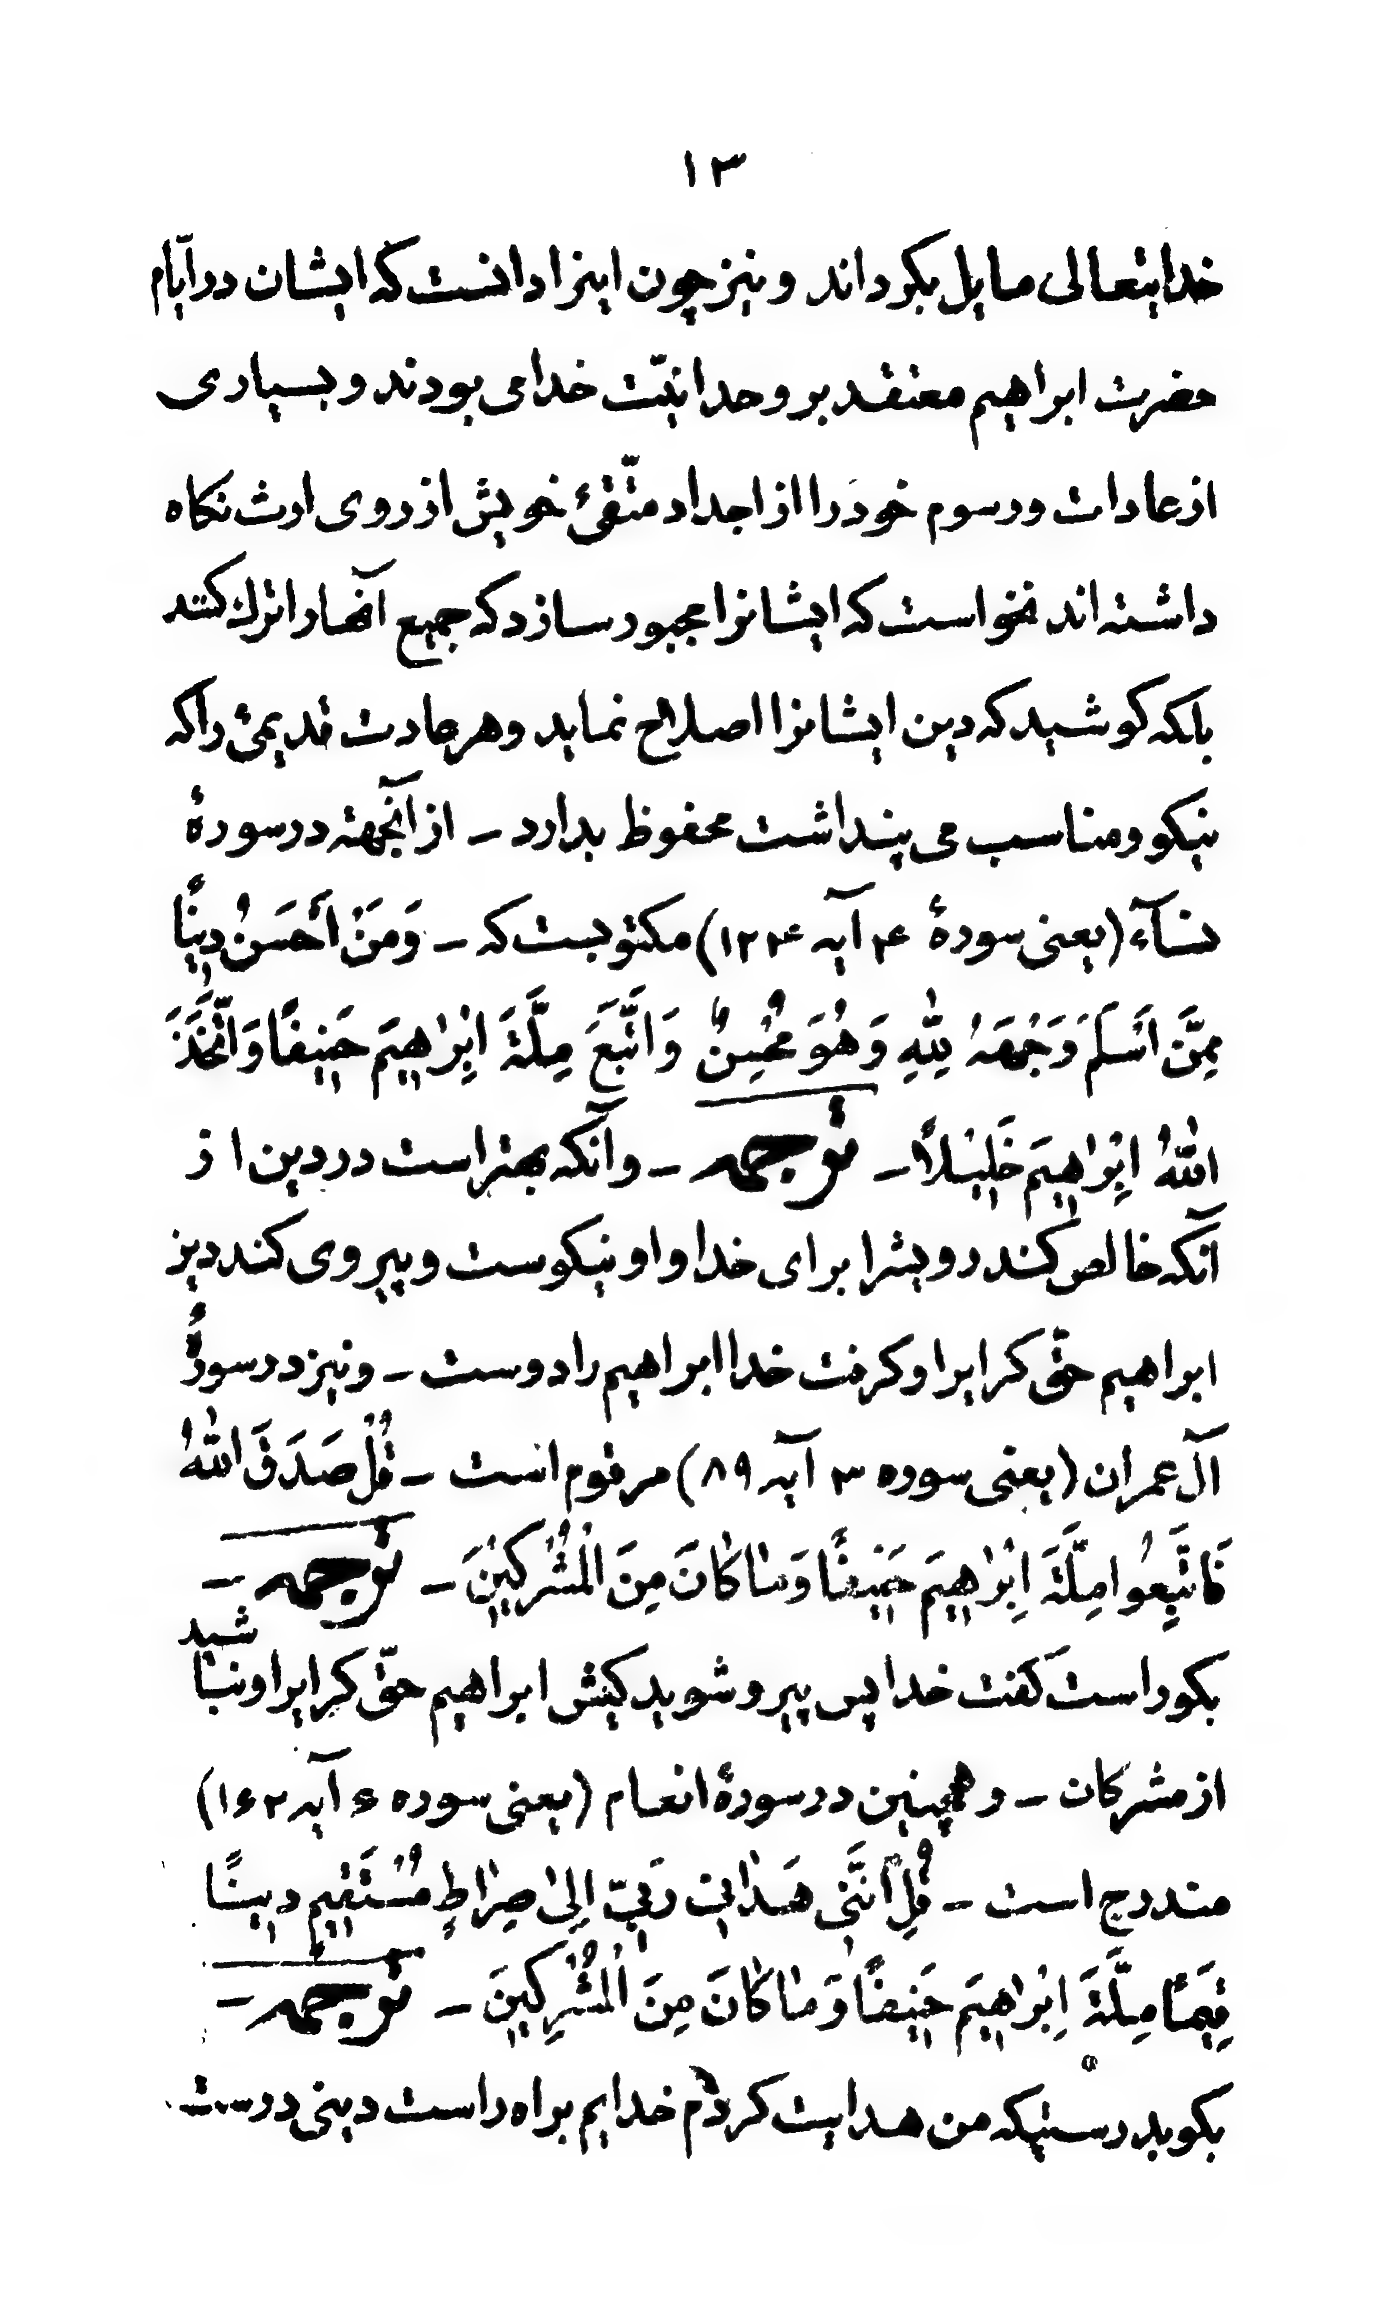 ١٣
خدایتعالی مایل بکرداند و نیز چون اینرا دانست که ایشان در ایّام
حضرت ابراهیم معتقد بر وحدانیّت خدا می بودند و بسیاری
از عادات و رسوم خود را از اجداد متّقیٔ خویش از روی ارث نکاه
داشته اند نخواست که ایشانرا مجبور سازد که جمیع آنها را ترك کنند
بلکه کوشید که دین ایشانرا اصلاح نماید و هر عادت قدیمیٔ را که
نیکو و مناسب می پنداشت محفوظ بدارد ـ از آنجهته در سورهٔ
نسآء (یعنی سورهٔ ۴ آیه ۱۲۴) مکتوبست که ـ وَمَنْ أَحْسَنُ دِينًا
مِمَّنْ اَسْلَمَ وَجْهَهُ لِلّٰهِ وَهُوَ مُحْسِنٌ وَاتَّبَعَ مِلَّةَ اِبْرٰاهِيمَ حَنِيفًا وَاتَّخَذَ
اللّٰهُ اِبْرٰاهِيمَ خَلِيْلاً ـ ترجمه ـ و آنکه بهتر است در دین از
آنکه خالص کند رویشرا برای خدا و او نیکوست و پیروی کند دین
ابراهیم حقّ کرایرا و کرفت خدا ابراهیم را دوست ـ و نیز در سورهٔ
آل عمران (یعنی سوره ۳ آیه ۸۹) مرقوم است ـ قُلْ صَدَقَ اللّٰهُ
فَاتَّبِعُوا مِلَّةَ اِبْرٰاهِيمَ حَنِيفًا وَمٰا كٰانَ مِنَ الْمُشْرِكِيْنَ ـ ترجمه ـ
بکو راست کفت خدا پس پیرو شوید کیش ابراهیم حقّ کرایرا و نبا شید
از مشرکان ـ و همچنین در سورهٔ انعام (یعنی سوره ۶ آیه ۱۶۲)
مندرج است ـ قُلْ اِنَّنِی هَدٰانِی رَبِّی اِلیٰ صِرٰاطٍ مُسْتَقِیمٍ دِینًا
قِیَمًا مِلَّةَ اِبْرٰاهِیمَ حَنِیفًا وَ مٰا كٰانَ مِنَ الْمُشْرِكِینَ ـ ترجمه ـ
بکو بدرستیکه من هدایت کردم خدایم براه راست دینی درست